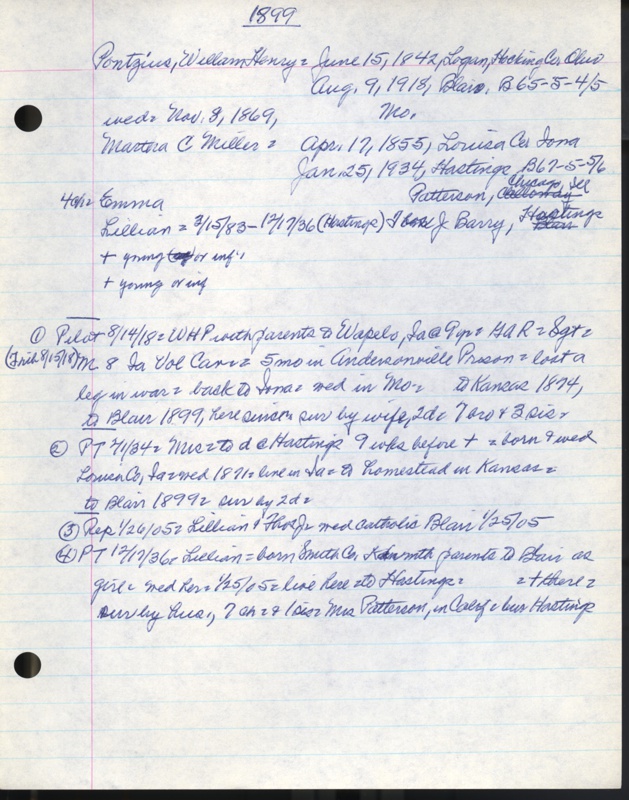 1899
Pontzius, William Henry = June 15, 1842, Logan, Hocking Co, Ohio
Aug. 9, 1918, Blair, B65-5-4/5
wed = Nov. 8, 1869, Mo.
Martha C Miller = Apr. 17, 1855, Louisa Co Iowa
Jan. 25, 1934, Hastings, B67-5-5/6
4 ch = Emma Patterson, Calloway Chicago, Ill
Lillian = 3/15/83 - 12/17/36 (Hastings) J Barry, Blair Hastings
+ young or inf
+ young or inf
① Pilot 8/14/18 = WHP with parents to Wapelo, Ia @ 9 yr = GAR = Sgt =
(Trib 8/15/18) M 8 Ia Vol Cav = = 5 mo in Andersonville Prison = lost a
leg in war = back to Iowa = wed in Mo = to Kansas 1874,
to Blair 1899, here since sur by wife, 2d = 7 bro & 3 sis =
② PT 2/1/34 = Mrs = to d @ Hastings 9 wks before + = born & wed
Louisa Co, Ia = wed 1871 = live in Ia = to homestead in Kansas =
to Blair 1899 = sur by 2d =
③ Rep 1/26/05 = Lillian & Thos J = wed Catholic Blair 1/25/05
④ PT 12/17/36 = Lillian = born Smith Co, Kan with parents to Blair as
girl = wed here = 1/25/05 = live here = to Hastings = = + there =
sur by hus, 7 ch = & 1 sis = Mrs Patterson, in Calif = bur Hastings